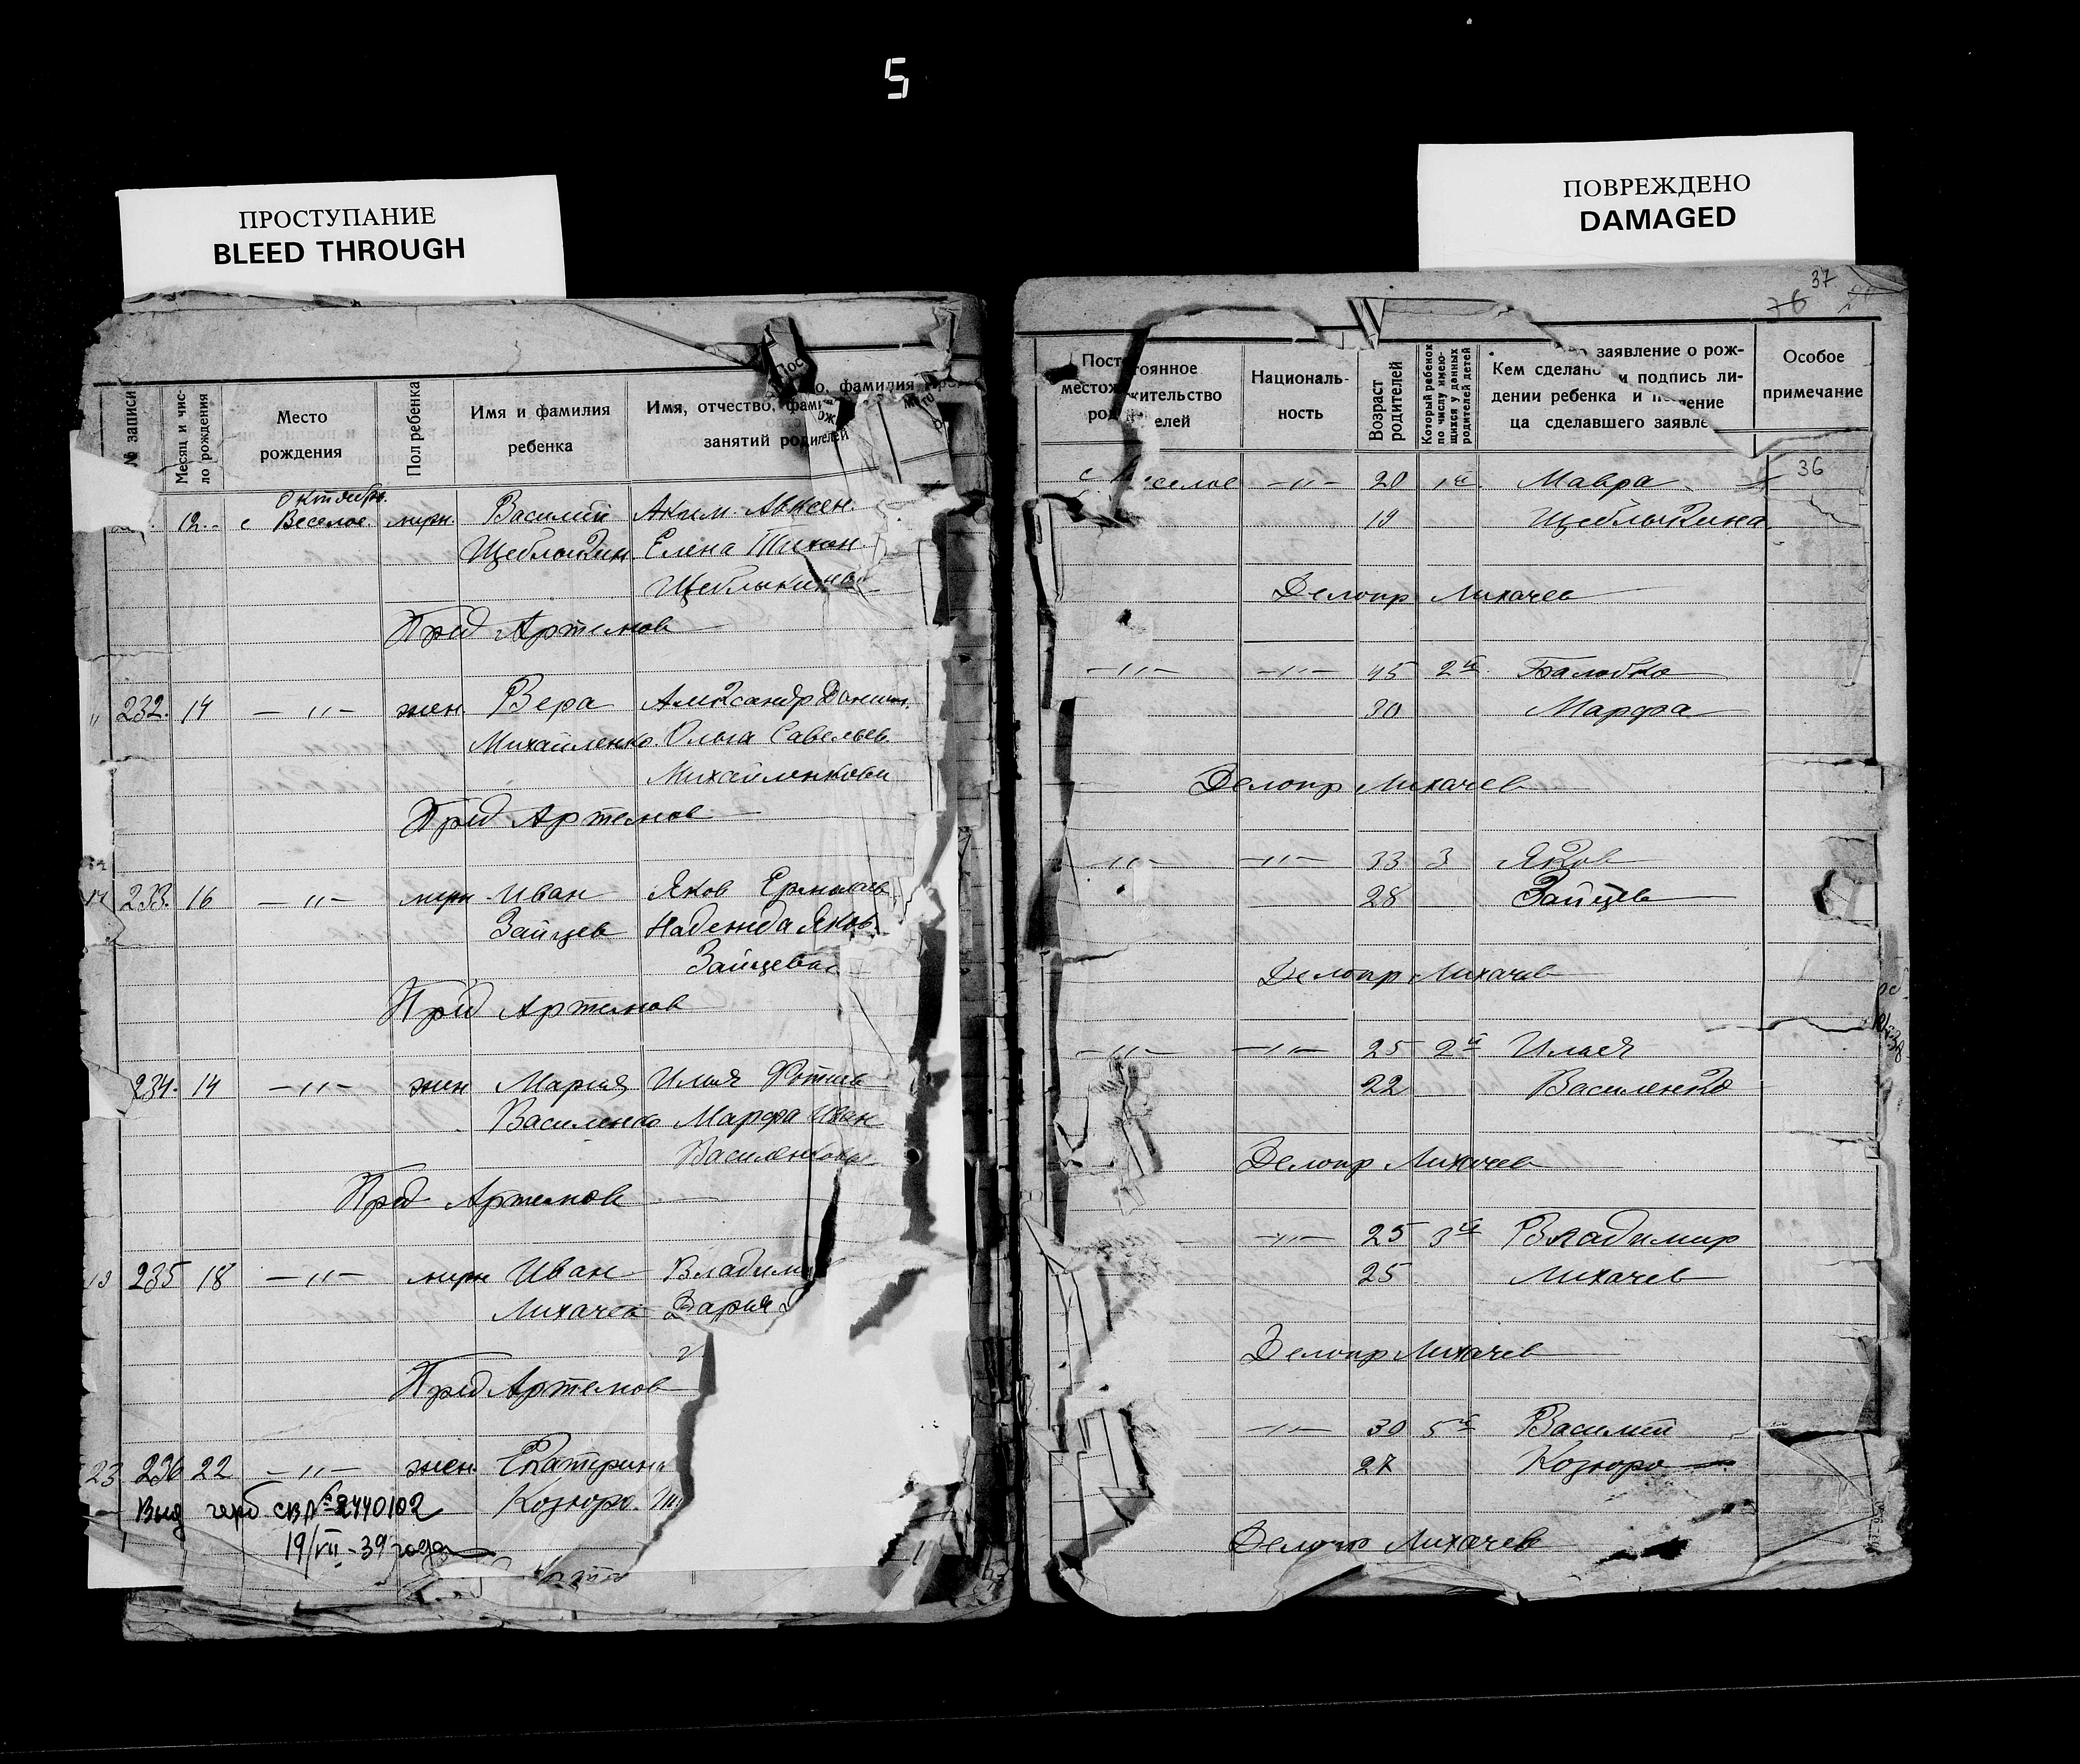 5
ПРОСТУПАНИЕ
BLEED THROUGH
ПОВРЕЖДЕНО
DAMAGED
№ записи
Месяц и чис-
ло рождения
Место
рождения
Пол ребенка
Имя и фамилия
ребенка
Имя, отчество, фами
занятий родителей
Октябрь
12 с Веселое Василий Аким. Авксен.
Щеблыкин Елена Тихон.
Щеблыкины
Пред Артемов
232. 14 — " — жен. Вера Александр Данил.
Михайленко Ольга Савельев.
Михайленкови
Пред Артемов
233. 16 — " — Иван Яков Ермолаев
Зайцев Надежда Яков.
Зайцева
Пред Артемов
234. 14 — " — жен Мария Илья Фотиев
Василенко Марфа Иван
Василенкови
Пред Артемов
235 18 — " — Иван Владими
Лихачев Дарья
Пред Артемов
23 236 22 — " — жен. Екатерина
Козюро
Выд герб св № 2440102
19/VII - 39 года
37
76
Постоянное
местожительство
родителей
Националь-
ность
Возраст
родителей
Который ребенок
по числу имею-
щихся у данных
родителей детей
Кем сделано заявление о рож-
дении ребенка и подпись ли-
ца сделавшего заявле
Особое
примечание
36
с Веселое — " — 20 1й Мавра
19 Щеблыкина
Делопр Лихачев
— " — — " — 45 2й Балобко
30 Марфа
Делопр Лихачев
— " — — " — 33 3 Яков
28 Зайцев
Делопр Лихачев
— " — — " — 25 2й Илья
22 Василенко
Делопр Лихачев
— " — 25 3й Владимир
25 Лихачев
Делопр Лихачев
— " — 30 5й Василий
27 Козюро
Делопр Лихачев